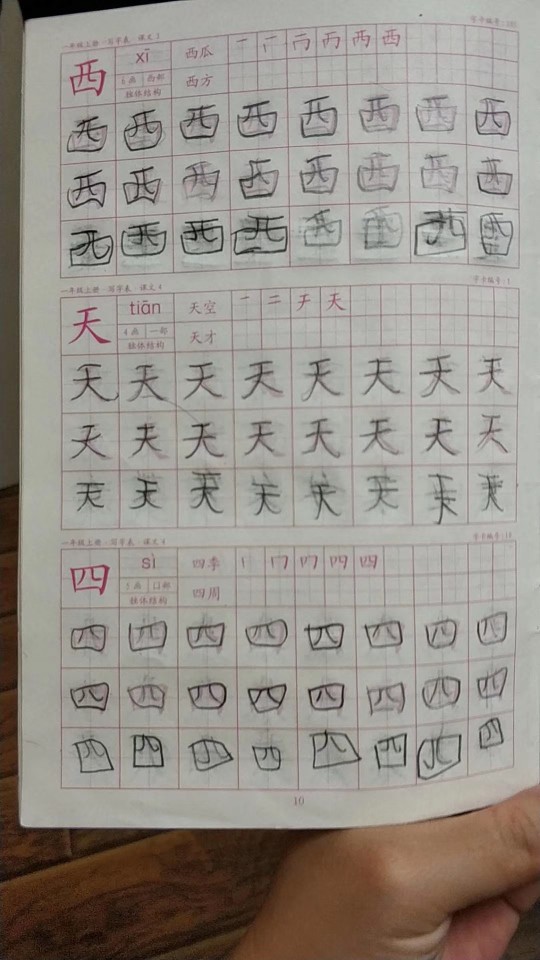 一年级上册·写字表·课文1
西 xī 西瓜 一 冂 襾 两 西 西
6画 西部 西方
独体结构
西 西 西 西 西 西 西 西
西 西 西 西 西 西 西 西
西 西 西 西 西 西 西 西
一年级上册·写字表·课文4 字卡编号:1
天 tiān 天空 一 二 チ 天
4画 一部 天才
独体结构
天 天 天 天 天 天 天 天
天 天 天 天 天 天 天 天
天 天 天 天 天 天 天 天
一年级上册·写字表·课文4
四 sì 四季 丨 冂 四 四 四
5画 囗部 四周
独体结构
四 四 四 四 四 四 四 四
四 四 四 四 四 四 四 四
四 四 四 四 四 四 四 四
10